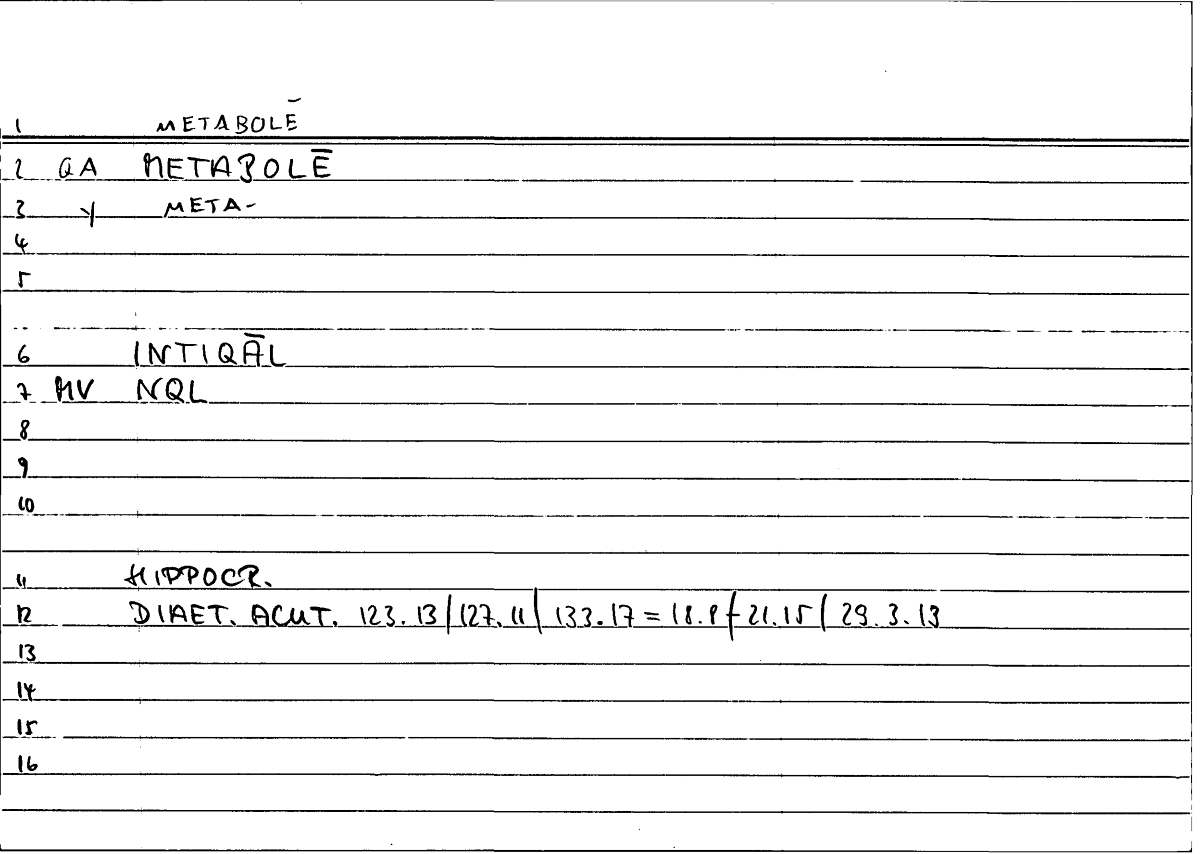 1 METABOLĒ
2 QA METABOLĒ
3 Y META-
4
5
6 INTIQĀL
7 MV NQL
8
9
10
11 HIPPOCR.
12 DIAET. ACUT. 123.13 | 127.11 | 133.17 = 18.8 | 21.15 | 29.3.13
13
14
15
16